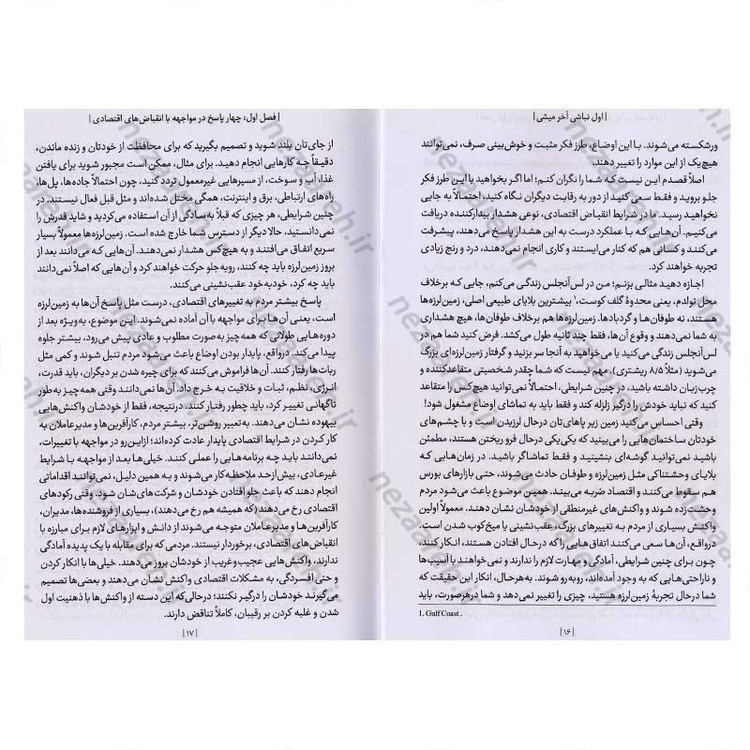 | اول نباشی آخر میشی |
ورشکسته می‌شوند. با این اوضاع، طرز فکر مثبت و خوش‌بینی صرف، نمی‌توانند
هیچ‌یک از این موارد را تغییر دهند.
اصلاً قصدم این نیست که شما را نگران کنم؛ اما اگر بخواهید با این طرز فکر
جلو بروید و فقط سعی کنید از دور به رقابت دیگران نگاه کنید، احتمالاً به جایی
نخواهید رسید. ما در شرایط انقباض اقتصادی، نوعی هشدار بیدارکننده دریافت
می‌کنیم. آن‌هایی که با عملکرد درست به این هشدار پاسخ می‌دهند، پیشرفت
می‌کنند و کسانی هم که کنار می‌ایستند و کاری انجام نمی‌دهند، درد و رنج زیادی
تجربه خواهند کرد.
اجازه دهید مثالی بزنم؛ من در لس‌آنجلس زندگی می‌کنم، جایی که برخلاف
محل تولدم، یعنی محدودهٔ گلف کوست،۱ بیشترین بلایای طبیعی اصلی، زمین‌لرزه‌ها
هستند، نه طوفان‌ها و گردبادها. زمین‌لرزه‌ها هم برخلاف طوفان‌ها، هیچ هشداری
به شما نمی‌دهند و وقوع آن‌ها، فقط چند ثانیه طول می‌کشد. فرض کنید شما هم در
لس‌آنجلس زندگی می‌کنید یا می‌خواهید به آنجا سر بزنید و گرفتار زمین‌لرزه‌ای بزرگ
می‌شوید (مثلاً ۸/۵ ریشتری). مهم نیست که شما چقدر شخصیتی متقاعدکننده و
چرب‌زبان داشته باشید، در چنین شرایطی، احتمالاً نمی‌توانید هیچ‌کس را متقاعد
کنید که نباید خودش را درگیر زلزله کند و فقط باید به تماشای اوضاع مشغول شود!
وقتی احساس می‌کنید زمین زیر پاهای‌تان درحال لرزیدن است و با چشم‌های
خودتان ساختمان‌هایی را می‌بینید که یکی‌یکی درحال فرو ریختن هستند، مطمئن
باشید نمی‌توانید گوشه‌ای بنشینید و فقط تماشاگر باشید. در زمان‌هایی که
بلایای وحشتناکی مثل زمین‌لرزه و طوفان حادث می‌شوند، حتی بازارهای بورس
هم سقوط می‌کنند و اقتصاد ضربه می‌بیند. همین موضوع باعث می‌شود مردم
وحشت‌زده شوند و واکنش‌های غیرمنطقی از خودشان نشان دهند. معمولاً اولین
واکنش بسیاری از مردم به تغییرهای بزرگ، عقب‌نشینی یا میخ‌کوب شدن است.
درواقع، آن‌ها سعی می‌کنند اتفاق‌هایی را که درحال افتادن هستند، انکار کنند،
چون برای چنین شرایطی، آمادگی و مهارت لازم را ندارند و نمی‌خواهند با آسیب‌ها
و ناراحتی‌هایی که به وجود آمده‌اند، روبه‌رو شوند. به‌هرحال، انکار این حقیقت که
شما درحال تجربهٔ زمین‌لرزه هستید، چیزی را تغییر نمی‌دهد و شما در‌هرصورت، باید
1. Gulf Coast.
| ۱۶ |
| فصل اول: چهار پاسخ در مواجهه با انقباض‌های اقتصادی |
از جای‌تان بلند شوید و تصمیم بگیرید که برای محافظت از خودتان و زنده ماندن،
دقیقاً چه کارهایی انجام دهید. برای مثال، ممکن است مجبور شوید برای یافتن
غذا، آب و سوخت، از مسیرهایی غیرمعمول تردد کنید، چون احتمالاً جاده‌ها، پل‌ها،
راه‌های ارتباطی، برق و اینترنت، همگی مختل شده‌اند و مثل قبل فعال نیستند. در
چنین شرایطی، هر چیزی که قبلاً به‌سادگی از آن استفاده می‌کردید و شاید قدرش را
نمی‌دانستید، حالا دیگر از دسترس شما خارج شده است. زمین‌لرزه‌ها معمولاً بسیار
سریع اتفاق می‌افتند و به هیچ‌کس هشدار نمی‌دهند. آن‌هایی که می‌دانند بعد از
بروز زمین‌لرزه باید چه کنند، روبه‌جلو حرکت خواهند کرد و آن‌هایی که اصلاً نمی‌دانند
باید چه کرد، خودبه‌خود عقب‌نشینی می‌کنند.
پاسخ بیشتر مردم به تغییرهای اقتصادی، درست مثل پاسخ آن‌ها به زمین‌لرزه
است، یعنی آن‌ها برای مواجهه با آن آماده نمی‌شوند. این موضوع، به‌ویژه بعد از
دوره‌هایی طولانی که همه‌چیز به‌صورت مطلوب و عادی پیش می‌رود، بیشتر جلوه
پیدا می‌کند. درواقع، پایدار بودن اوضاع باعث می‌شود مردم تنبل شوند و کمی مثل
ربات‌ها رفتار کنند. آن‌ها فراموش می‌کنند که برای چیره شدن بر دیگران، باید قدرت،
انرژی، نظم، ثبات و خلاقیت به خرج داد. آن‌ها نمی‌دانند وقتی همه‌چیز به‌طور
ناگهانی تغییر کرد، باید چطور رفتار کنند، درنتیجه، فقط از خودشان واکنش‌هایی
بیهوده نشان می‌دهند. به‌تعبیر روشن‌تر، بیشتر مردم، کارآفرین‌ها و مدیرعاملان به
کار کردن در شرایط اقتصادی پایدار عادت کرده‌اند؛ ازاین‌رو در مواجهه با تغییرات،
نمی‌دانند باید چه برنامه‌هایی را عملی کنند. خیلی‌ها بعد از مواجهه با شرایط
غیرعادی، بیش‌ازحد ملاحظه‌کار می‌شوند و به همین دلیل، نمی‌توانند اقداماتی
انجام دهند که باعث جلو افتادن خودشان و شرکت‌های‌شان شود. وقتی رکودهای
اقتصادی رخ می‌دهند (که همیشه هم رخ می‌دهند)، بسیاری از فروشنده‌ها، مدیران،
کارآفرین‌ها و مدیرعاملان متوجه می‌شوند از دانش و ابزارهای لازم برای مبارزه با
انقباض‌های اقتصادی، برخوردار نیستند. مردمی که برای مقابله با یک پدیده آمادگی
ندارند، واکنش‌هایی عجیب‌وغریب از خودشان بروز می‌دهند. خیلی‌ها با انکار کردن
و حتی افسردگی، به مشکلات اقتصادی واکنش نشان می‌دهند و بعضی‌ها تصمیم
می‌گیرند خودشان را درگیر نکنند؛ درحالی‌که این دسته از واکنش‌ها با ذهنیت اول
شدن و غلبه کردن بر رقیبان، کاملاً تناقض دارند.
| ۱۷ |
nezaaneh.ir